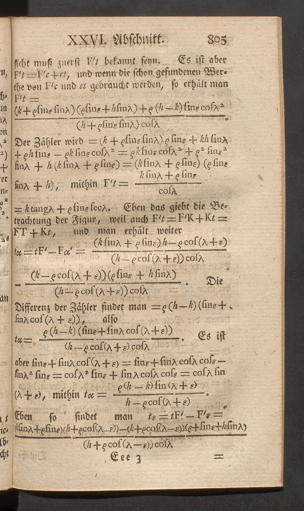 XXVI. Abschnitt. 805
sicht muß zuerst F't bekannt seyn. Es ist aber
F't=F'c+ct, und wenn die schon gefundenen Wer-
the von F'c und ct gebraucht werden, so erhält man
F't =
(k+ϱ sinε sinλ) (ϱ sinε + h sinλ) + ϱ (h−k) sinε cosλ²
(h + ϱ sinε sinλ) cosλ
Der Zähler wird = (k + ϱ sinε sinλ) ϱ sinε + kh sinλ
+ ϱh sinε − ϱk sinε cosλ² = ϱk sinε cosλ² + ϱ² sinε²
sinλ + h (k sinλ + ϱ sinε) = (k sinλ + ϱ sinε) (ϱ sinε
sinλ + h), mithin F't = k sinλ + ϱ sinε
cosλ
= k tangλ + ϱ sinε secλ. Eben das giebt die Be-
trachtung der Figur, weil auch F't = F'K + Kt =
FT + Kt, und man erhält weiter
tα = tF' − Fα' = (k sinλ + ϱ sinε) h − ϱ cos(λ + ε)
(h − ϱ cos(λ + ε)) cosλ
− (k − ϱ cos(λ + ε)) (ϱ sinε + h sinλ)
(h − ϱ cos(λ + ε)) cosλ . Die
Differenz der Zähler findet man = ϱ (h − k) (sinε +
sinλ cos(λ + ε)), also
tα = ϱ (h − k) (sinε + sinλ cos(λ + ε))
(h − ϱ cos(λ + ε)) cosλ . Es ist
aber sinε + sinλ cos(λ + ε) = sinε + sinλ cosλ cosε −
sinλ² sinε = cosλ² sinε + sinλ cosλ cosε = cosλ sin
(λ + ε), mithin tα = ϱ (h − k) sin(λ + ε)
h − ϱ cos(λ + ε) .
Eben so findet man tε = tF' − F'ε =
(h + ϱ cos(λ − ε)) cosλ
Eee 3 =